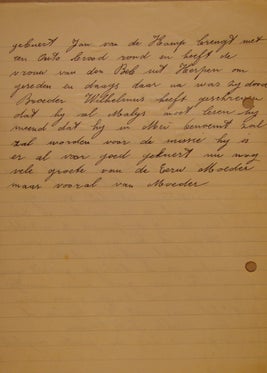 gebuert Jan van de Kamp brengt met
een Auto brood rond en heeft de
vrouw van den Bob uit Herpen om
gereden en draags daar na was hy dood
Broeder Wilhelmus heeft geschreven
dat hy al Malijs moet leren hy
meend dat hy in Mei benoemt zal
zal worden voor de missie hy is
er al voor goed gekuert nu nog
vele groete van de Eerw Moeder
maar vooral van Moeder